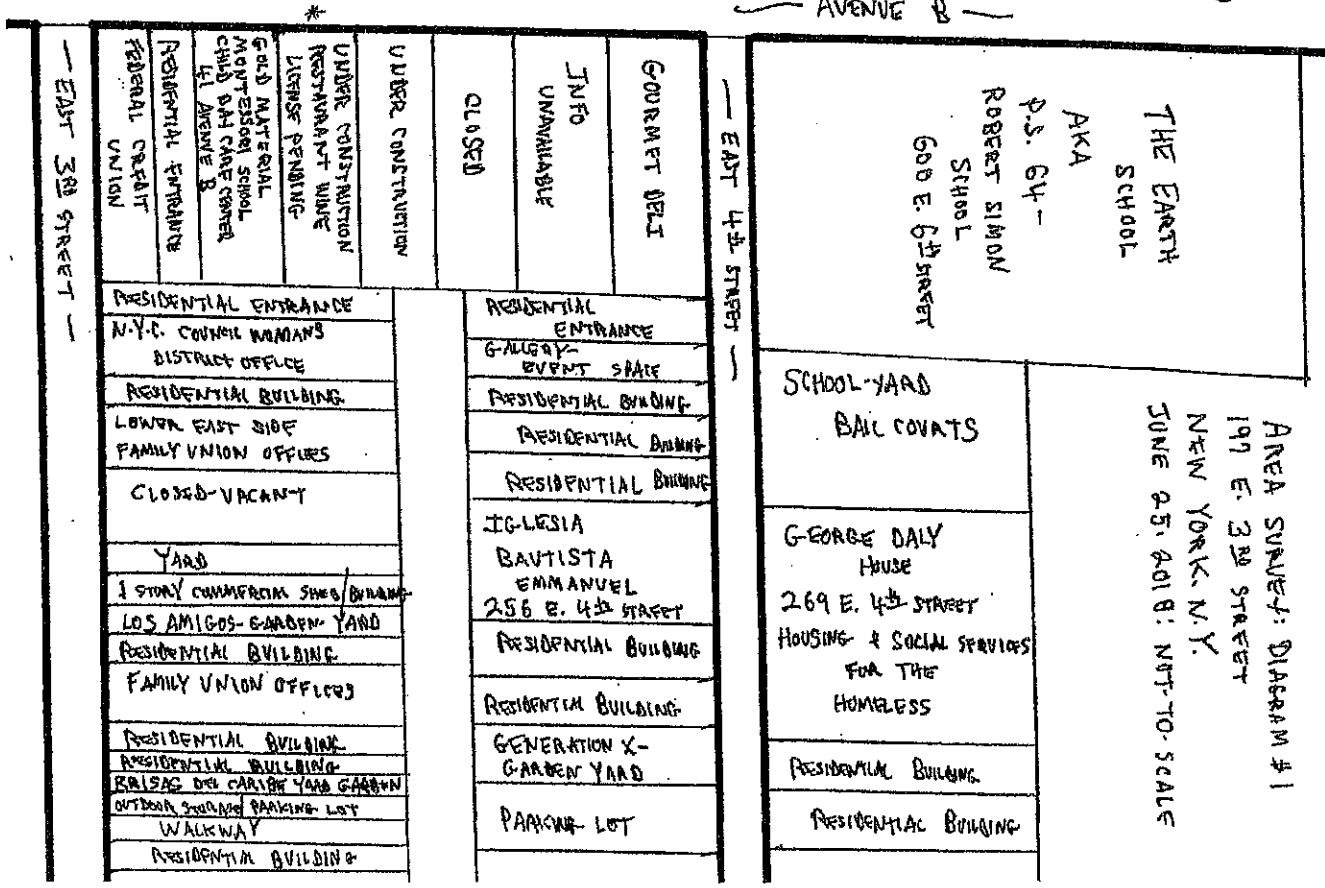 *
AVENUE B
— EAST 3RD STREET —
FEDERAL CREDIT
UNION
RESIDENTIAL ENTRANCE
GOLD MATERIAL
MONTESSORI SCHOOL
CHILD DAY CARE CENTER
41 AVENUE B
UNDER CONSTRUCTION
RESTAURANT WINE
LICENSE PENDING
UNDER CONSTRUCTION
CLOSED
INFO
UNAVAILABLE
GOURMET DELI
— EAST 4th STREET —
THE EARTH
SCHOOL
AKA
P.S. 64 -
ROBERT SIMON
SCHOOL
600 E. 6th STREET
RESIDENTIAL ENTRANCE
N.Y.C. COUNCIL WOMANS
DISTRICT OFFICE
RESIDENTIAL BUILDING
LOWER EAST SIDE
FAMILY UNION OFFICES
CLOSED-VACANT
YARD
1 STORY COMMERCIAL SHED/BUILDING
LOS AMIGOS-GARDEN-YARD
RESIDENTIAL BUILDING
FAMILY UNION OFFICES
RESIDENTIAL BUILDING
RESIDENTIAL BUILDING
BRISAS DEL CARIBE YARD GARDEN
OUTDOOR STORAGE/PARKING LOT
WALKWAY
RESIDENTIAL BUILDING
RESIDENTIAL
ENTRANCE
GALLERY-
EVENT SPACE
RESIDENTIAL BUILDING
RESIDENTIAL BUILDING
RESIDENTIAL BUILDING
IGLESIA
BAUTISTA
EMMANUEL
256 E. 4th STREET
RESIDENTIAL BUILDING
RESIDENTIAL BUILDING
GENERATION X-
GARDEN YARD
PARKING LOT
SCHOOL-YARD
BALL COURTS
GEORGE DALY
HOUSE
269 E. 4th STREET
HOUSING & SOCIAL SERVICES
FOR THE
HOMELESS
RESIDENTIAL BUILDING
RESIDENTIAL BUILDING
AREA SURVEY: DIAGRAM #1
197 E. 3RD STREET
NEW YORK. N.Y.
JUNE 25. 2018: NOT-TO-SCALE